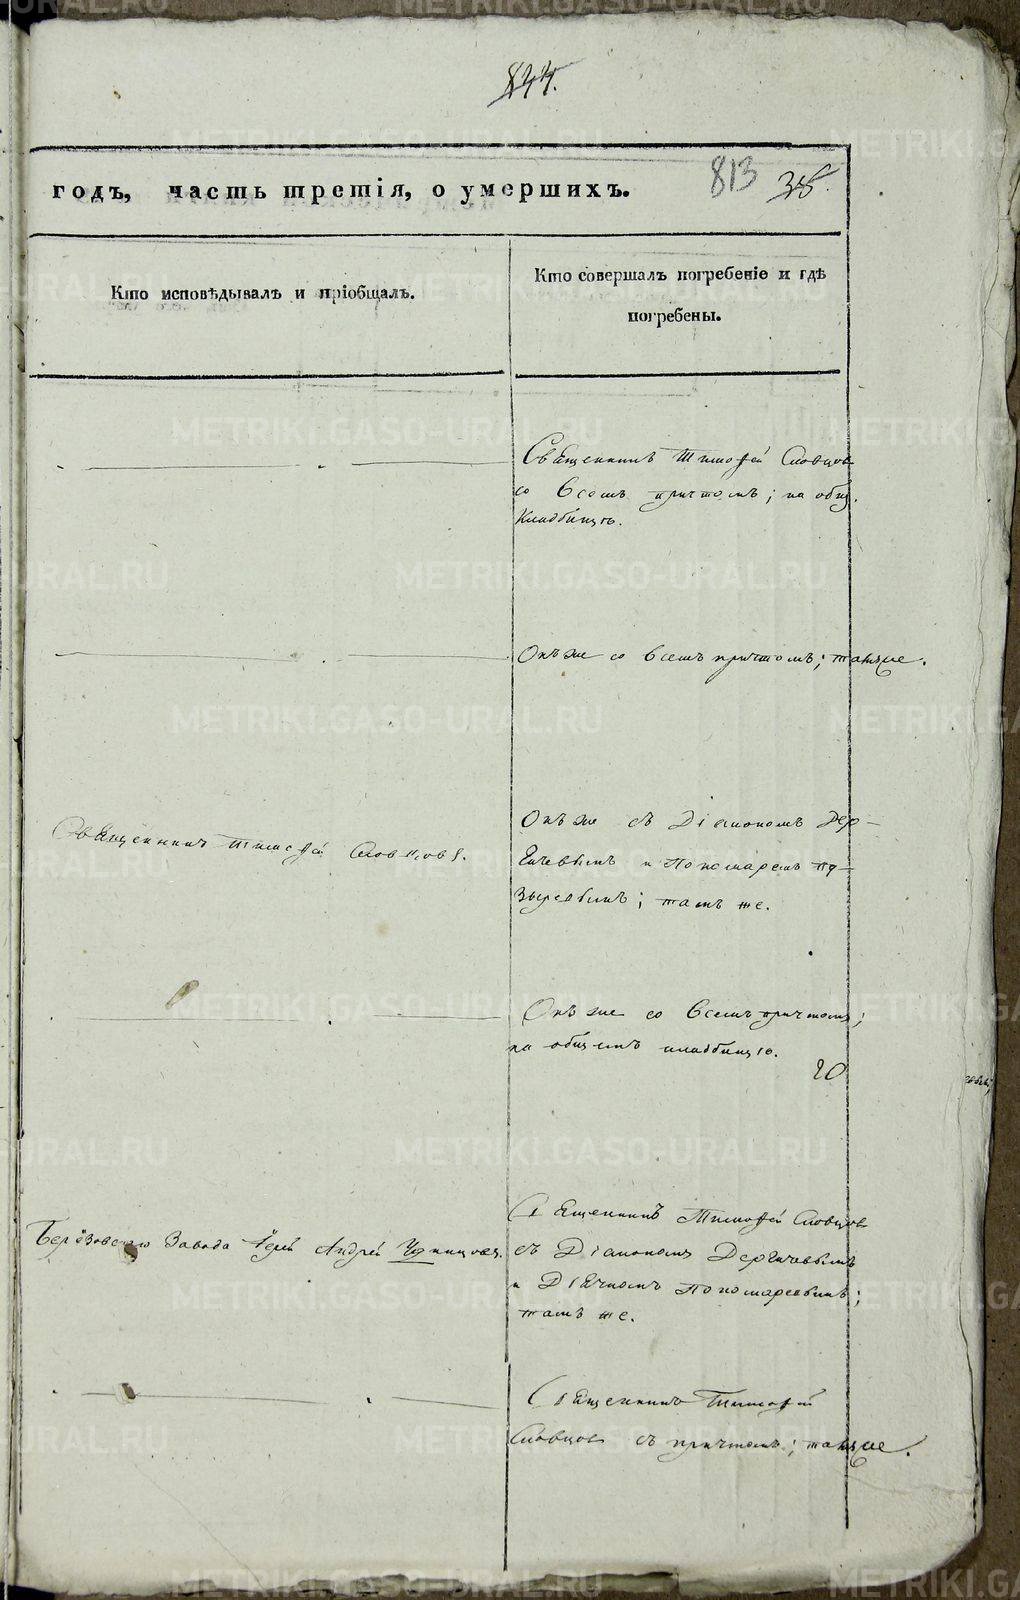 844.
годъ, часть третія, о умершихъ.
813
Кто исповѣдывалъ и пріобщалъ.
Кто совершалъ погребеніе и гдѣ
погребены.
Священникъ Тимофей Словцов
со всемъ причтомъ; на общ.
кладбищѣ.
Онъ же со всемъ причтомъ; тамже.
Священникъ Тимофей Словцовъ.
Онъ же съ Діакономъ Дер-
гачевымъ и Пономаремъ Пу-
зыревымъ; тамъ же.
Онъ же со всемъ причтомъ;
на общемъ кладбищѣ.
20
Берёзовскаго Завода Іерей Андрей
Священникъ Тимофей Словцов
съ Діакономъ Дергачевымъ
и Дьячкомъ Пономаревымъ;
тамъ же.
Священникъ Тимофей
Словцов съ причтомъ; тамже.
METRIKI.GASO-URAL.RU